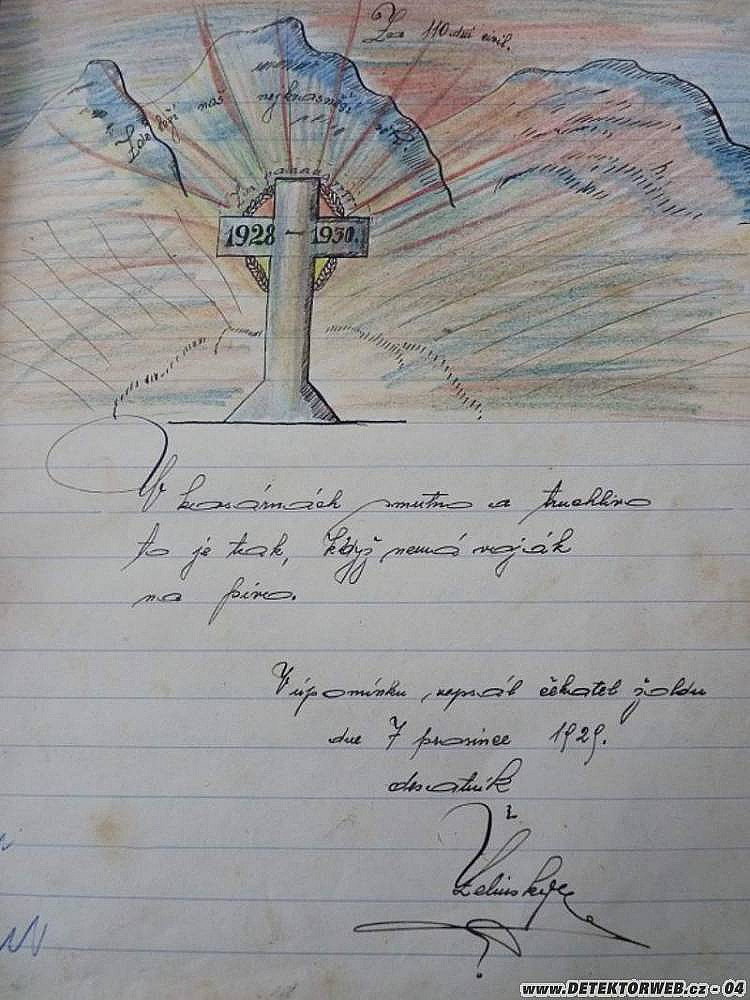 Za 110 dní civil.
Zde leží náš nejkrasnější
1928 – 1930.
V kasárnách smutno a truchlivo
to je tak, když nemá voják
na pivo.
V úpomínku, napsál čekatel žoldu
dne 7 prosince 1929.
desatník
Zelinský
www.DETEKTORWEB.cz - 04